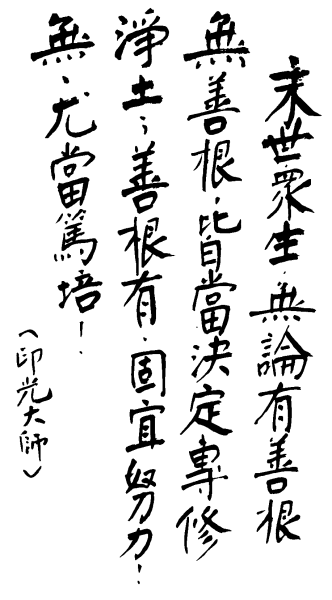 末世眾生、無論有善根
無善根、皆當決定專修
淨土；善根有、固宜努力！
無、尤當篤培！
（印光大師）